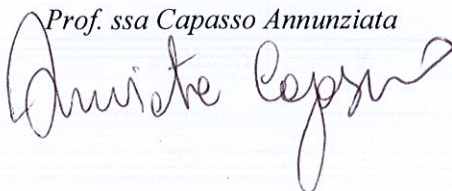 Prof. ssa Capasso Annunziata
Annunziata Capasso